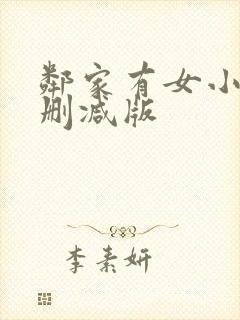 鄰家有女小
删减版
李素妍